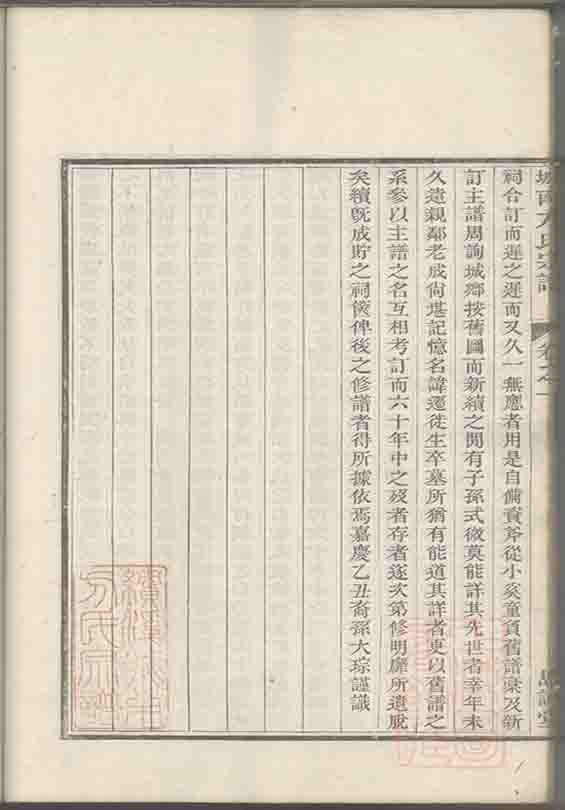 城南方氏宗譜
卷之一
祠合訂而遲之遲而又久一無應者用是自備資斧從小奚童負舊譜彙及新
訂主譜周詢城鄉按舊圖而新續之閒有子孫式微莫能詳其先世者幸年未
久遠親鄰老成尙堪記憶名諱遷徙生卒墓所猶有能道其詳者更以舊譜之
系參以主譜之名互相考訂而六十年中之歿者存者遂次第修明靡所遺脫
矣續旣成貯之祠篋俾後之修譜者得所據依焉嘉慶乙丑裔孫大琮謹識